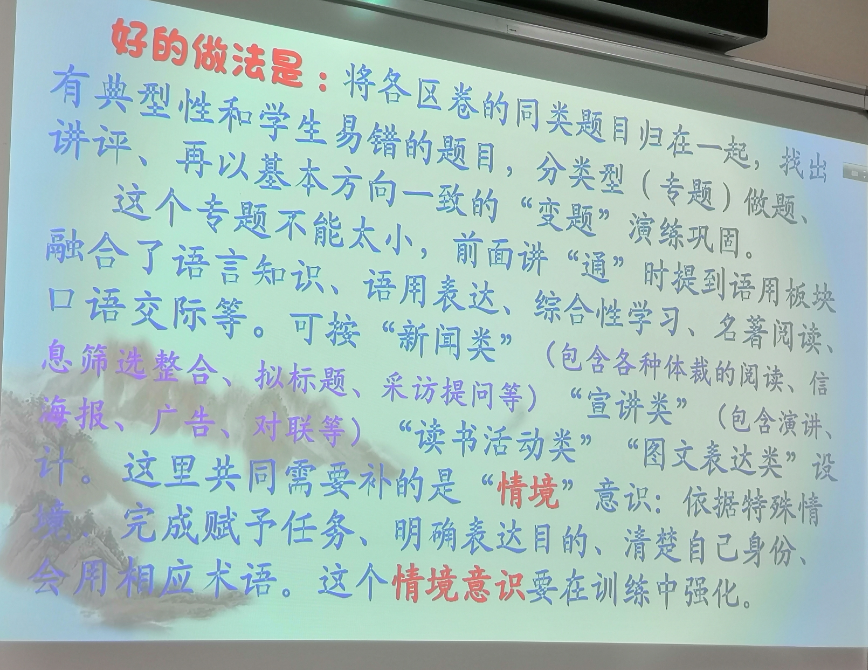 好的做法是：将各区卷的同类题目归在一起，找出
有典型性和学生易错的题目，分类型（专题）做题、
讲评、再以基本方向一致的“变题”演练巩固。
这个专题不能太小，前面讲“通”时提到语用板块
融合了语言知识、语用表达、综合性学习、名著阅读、
口语交际等。可按“新闻类”（包含各种体裁的阅读、信
息筛选整合、拟标题、采访提问等）“宣讲类”（包含演讲、
海报、广告、对联等）“读书活动类”“图文表达类”设
计。这里共同需要补的是“情境”意识：依据特殊情
境、完成赋予任务、明确表达目的、清楚自己身份、
会用相应术语。这个情境意识要在训练中强化。